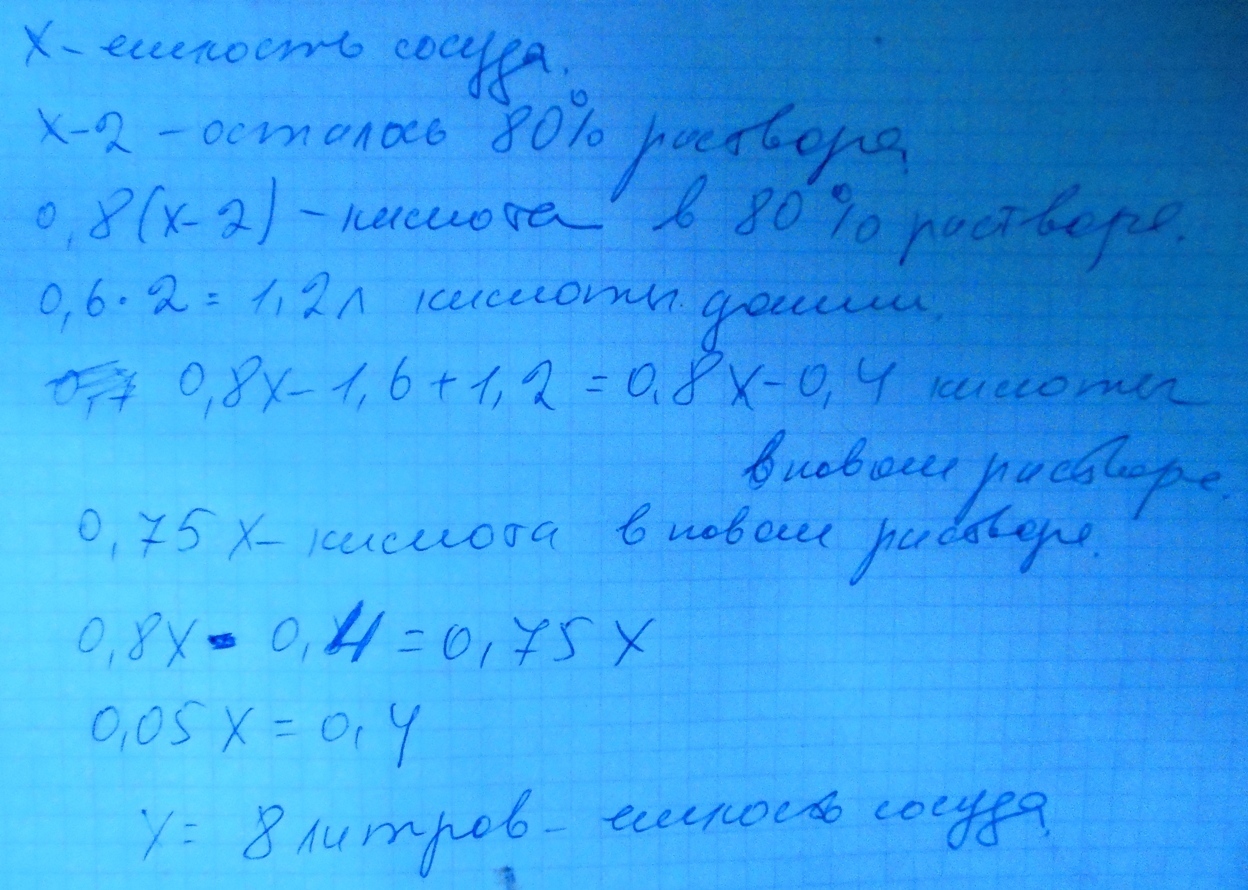 х - емкость сосуда.
х-2 - осталось 80% раствора
0,8(х-2) - кислота в 80% растворе.
0,6·2 = 1,2л кислоты долили.
0,8х-1,6+1,2 = 0,8х-0,4 кислоты
в новом растворе.
0,75х - кислота в новом растворе.
0,8х - 0,4 = 0,75х
0,05х = 0,4
х = 8 литров - емкость сосуда